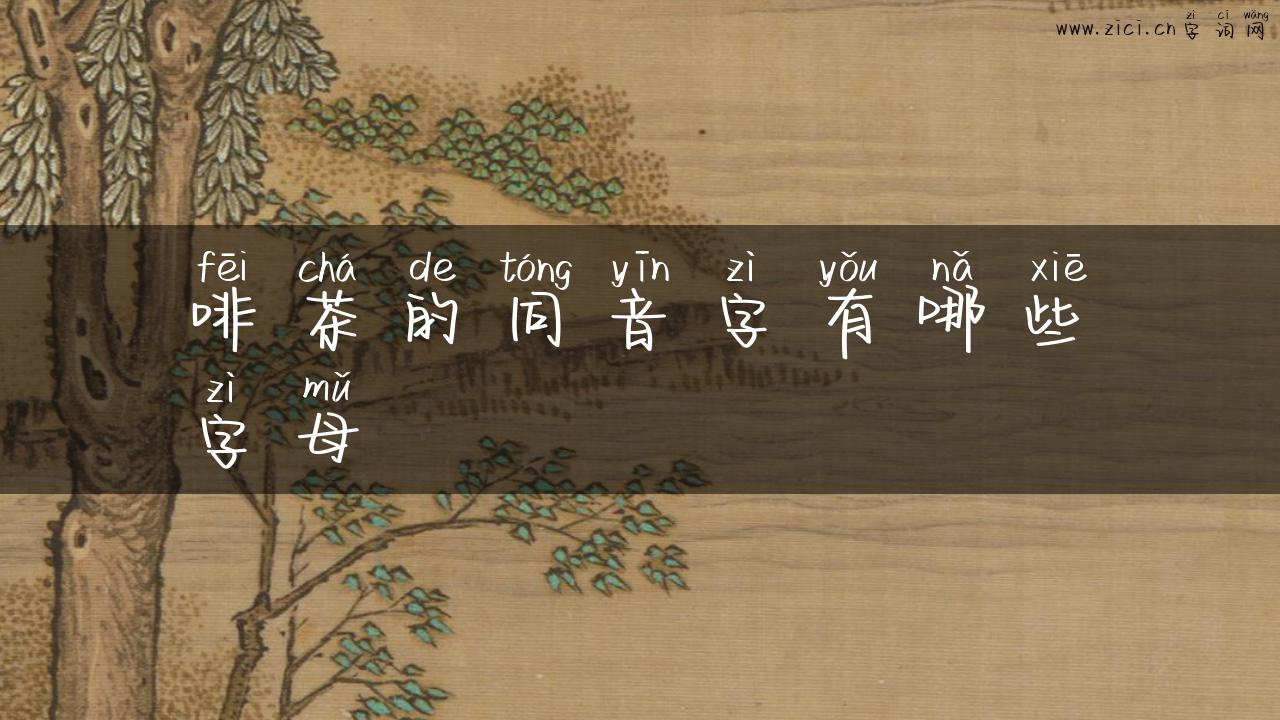 zì cí wǎng
www.zici.cn 字词网
fēi chá de tóng yīn zì yǒu nǎ xiē
啡茶的同音字有哪些
zì mǔ
字母